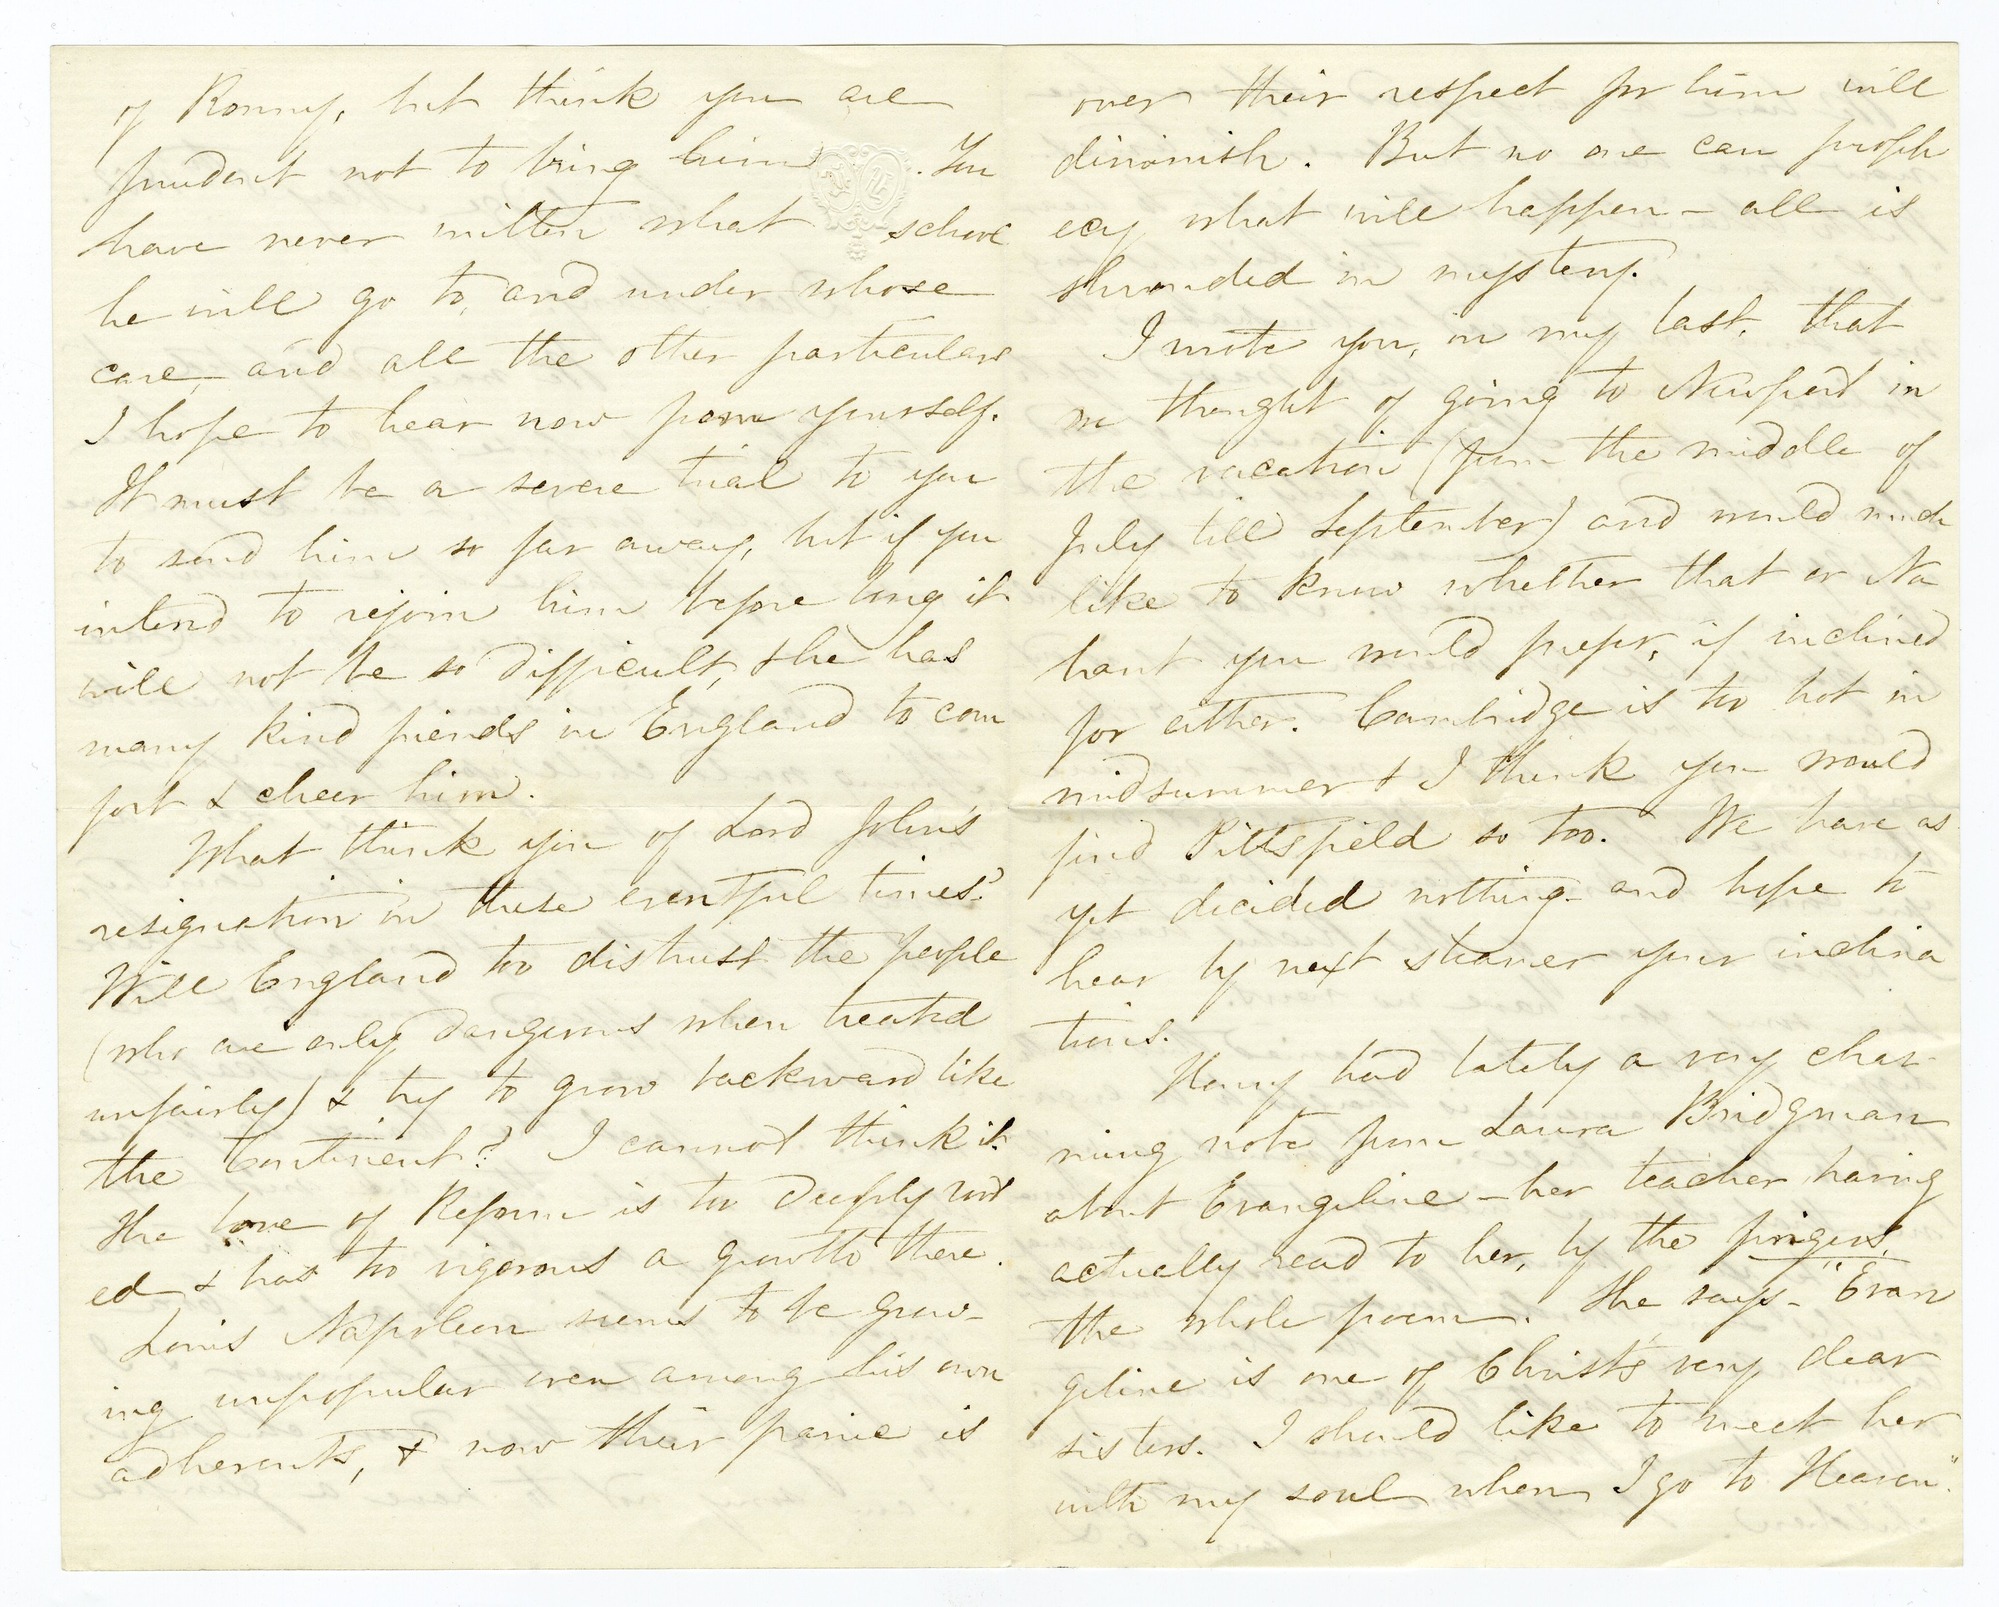 of Ronny, but think you are
prudent not to bring him. You
have never written what school
he will go to, and under whose
care, and all the other particulars
I hope to hear now from yourself.
It must be a severe trial to you
to send him so far away, but if you
intend to rejoin him before long it
will not be so difficult, & he has
many kind friends in England to com
fort & cheer him.
What think you of Lord John's
resignation in these eventful times?
Will England too distrust the people
(who are only dangerous when treated
unfairly) & try to grow backward like
the Continent? I cannot think it.
The love of Reform is too deeply root
ed & has too vigorous a growth there.
Louis Napoleon seems to be grow-
ing unpopular even among his own
adherents, & now their panic is
over their respect for him will
diminish. But no one can proph
ecy what will happen - all is
shrouded in mystery.
I wrote you, in my last, that
we thought of going to Newport in
the vacation (from the middle of
July till September) and would much
like to know whether that or Na
hant you would prefer, if inclined
for either. Cambridge is too hot in
midsummer & I think you would
find Pittsfield so too. We have as
yet decided nothing and hope to
hear by next steamer your inclina
tions.
Henry had lately a very char-
ming note from Laura Bridgman
about Evangeline - her teacher having
actually read to her, by the fingers,
the whole poem. She says - "Evan
geline is one of Christ's very dear
sisters. I should like to meet her
with my soul when I go to Heaven".